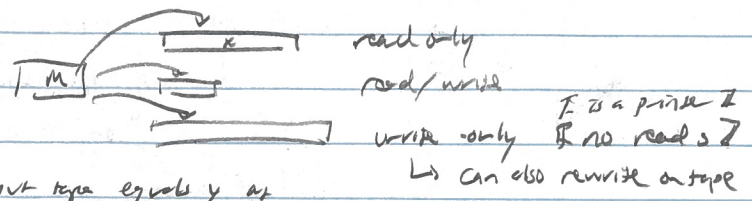 x read only
M read/write
[ is a printer ]
write-only [ no reads ]
↳ can also rewrite on tape
tape equals y at